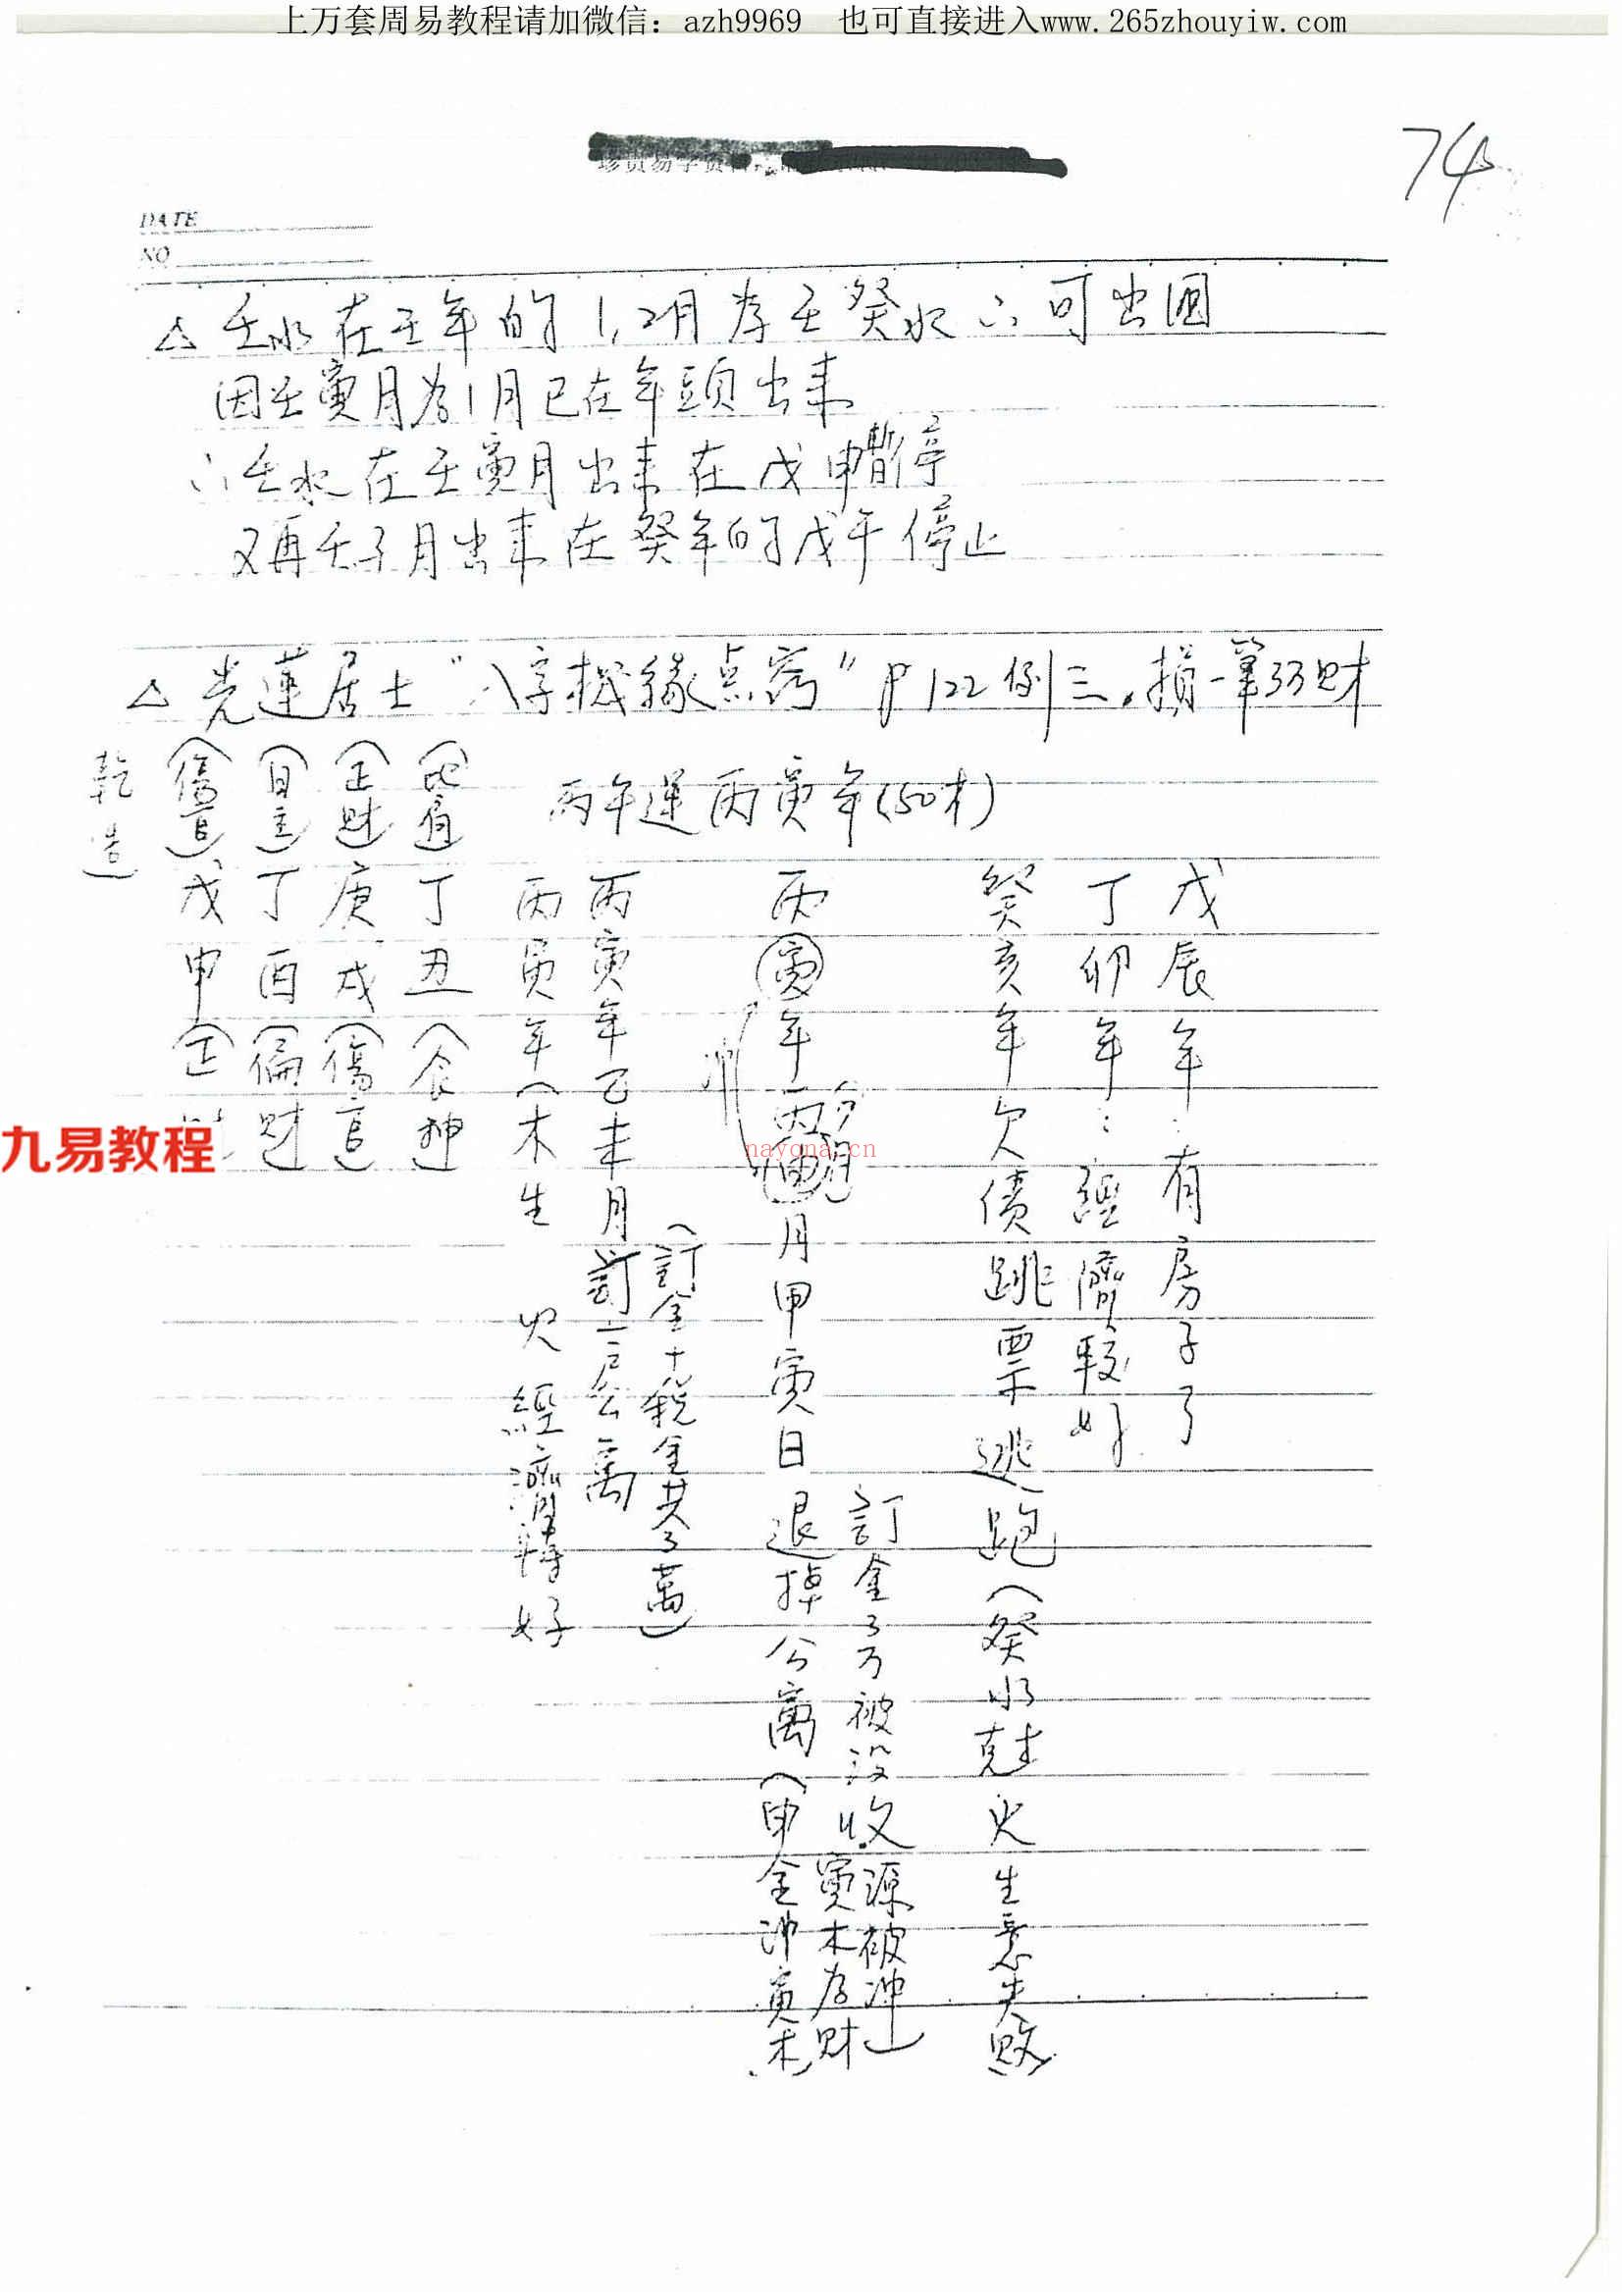 上万套周易教程请加微信：azh9969　也可直接进入www.265zhouyiw.com
74
DATE
NO
△ 壬水在壬年的1,2月为壬癸水 ∴可出国
因壬寅月为1月已在年頭出来
∴壬水在壬寅月出来在戊申暫停
又再壬子月出来在癸年的戊午停止
△ 光蓮居士"八字機緣点窍" P122例三.損一筆3万財
丙午運丙寅年(50才)
戊辰年:有房子了
丁卯年:經濟較好
癸亥年欠債跳票逃跑(癸水尅火生意失敗)
丙寅年丙申月甲寅日退掉公寓(申金沖寅木)
訂金3万被没收
寅木为財
源被沖
沖
(訂金十税金共3萬)
丙寅年乙未月訂公寓
丙寅年(木生火經濟轉好
(比肩)丁丑(食神)
(正財)庚戌(傷官)
(日主)丁酉(偏財)
(傷官)戊申(正
乾造
九易教程
nayona.cn